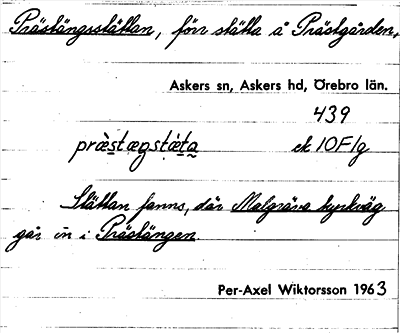 Prästängsstättan, förr stätta å Prästgården,
Askers sn, Askers hd, Örebro län.
439
præ̀stægstæ̀ta ek 10F1g
Stättan fanns, där Malgräva kyrkväg
går in i Prästängen.
Per-Axel Wiktorsson 1963